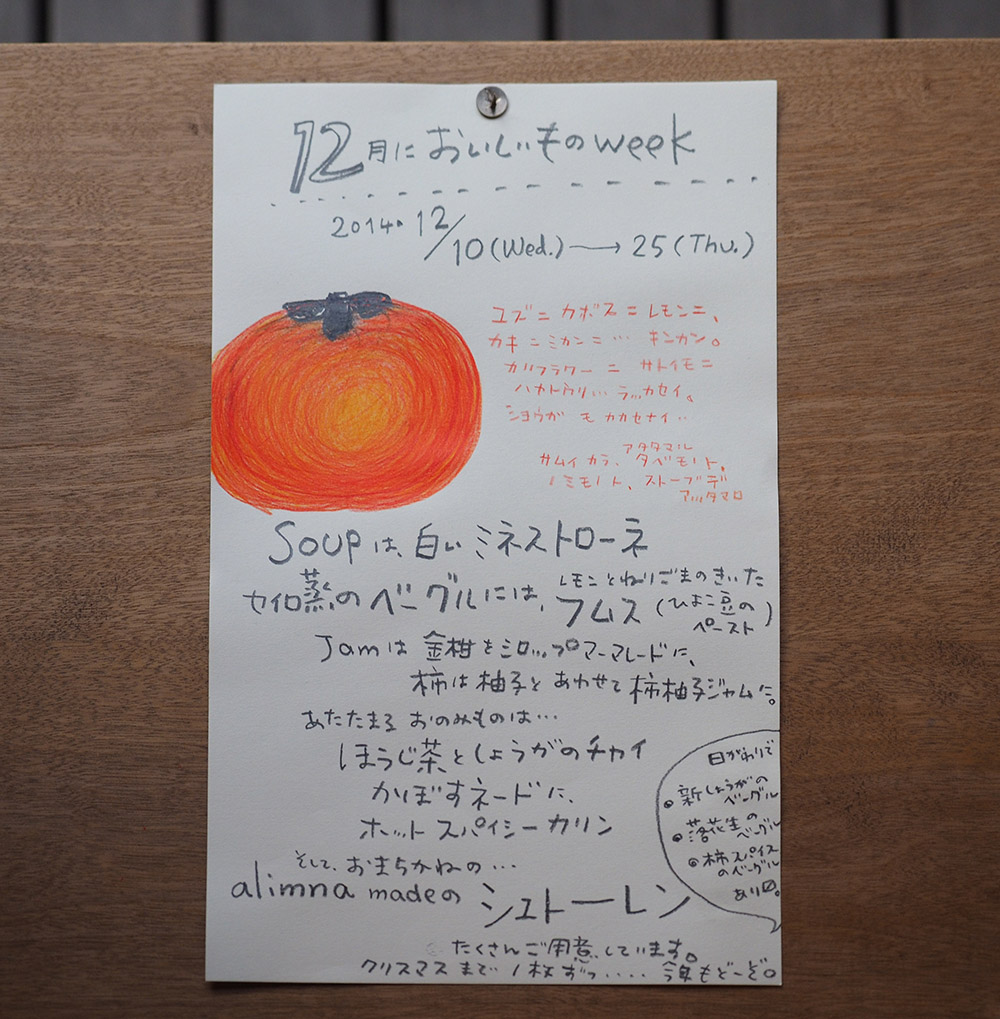 12月に おいしいもの week
2014. 12/10 (Wed.) → 25 (Thu.)
ユズニ カボスニ レモンニ、
カキニ ミカンニ… キンカン。
カリフラワーニ サトイモニ
ハヤトウリ… ラッカセイ。
ショウガ モ カカセナイ…
サムイカラ、アタタマル
タベモノト、
ノミモノト、ストーブデ
アッタマロ
Soupは、白いミネストローネ
セイロ蒸しのベーグルには、レモンとねりごまのきいた
フムス (ひよこ豆の
ペースト)
Jamは 金柑をシロップマーマレードに、
柿は柚子と あわせて 柿柚子ジャムに。
あたたまる おのみものは…
ほうじ茶としょうがのチャイ
かぼすネードに、
ホットスパイシーカリン
日がわりで
●新しょうがの
ベーグル
●落花生の
ベーグル
●柿スパイス
のベーグル
あり〼。
そして、おまちかねの…
alimna madeの シュトーレン
たくさんご用意しています。
クリスマスまで 1枚ずつ..... 今年もどーぞ。